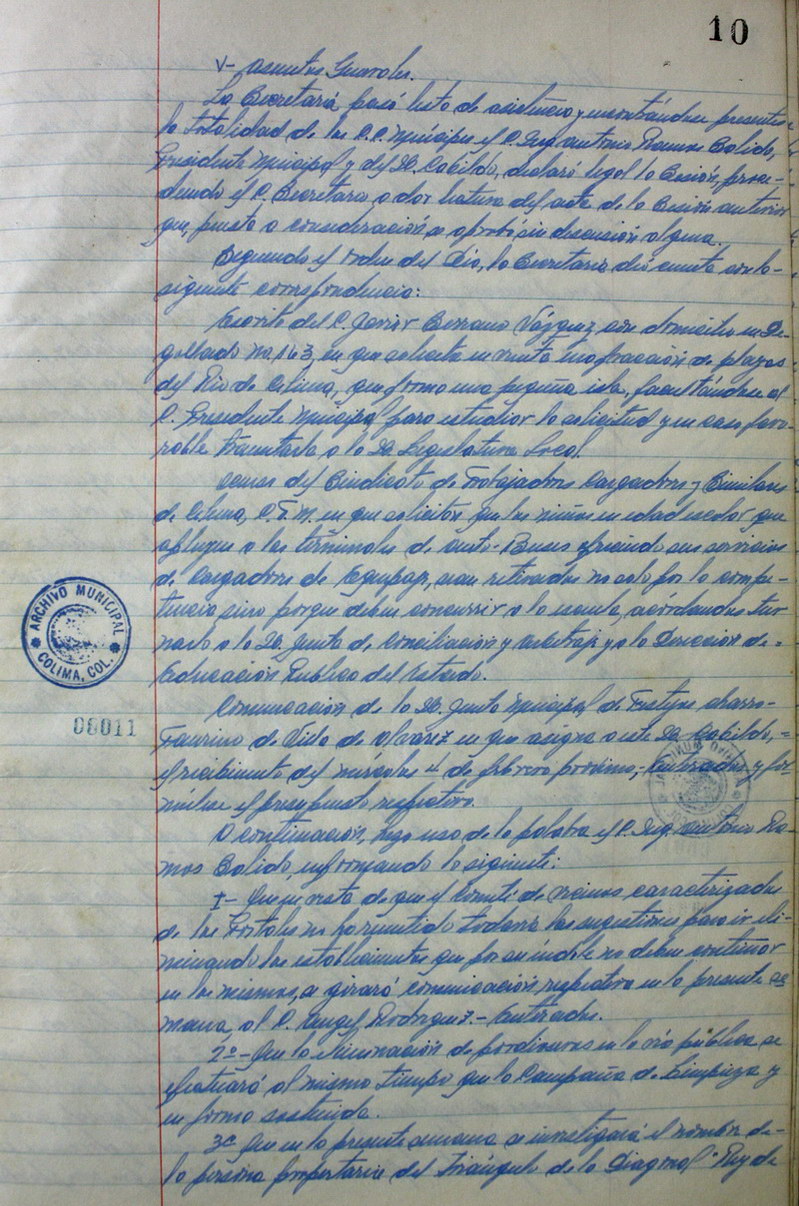 10
V- Asuntos Generales.
La Secretaría pasó lista de asistencia y encontándose presentes
la totalidad de los C.C. Múnícipes el C. Ing. Antonio Ramos Salido,
Presidente Municipal y del H. Cabildo, declaró legal la Sesión, proce-
diendo el C. Secretario a dar lectura del acta de la Sesión anterior
que, puesta a consideración se aprobó sin discusión alguna.
Siguiendo el orden del Día, la Secretaría dió cuenta con la
siguiente correspondencia:
Escrito del C. Javier Serrano Vázquez, con domicilio en De-
gollado no. 163, en que solicita en venta una fracción de playas
del Río de Colima, que forma una pequeña isla, facultándose al
C. Presidente Municipal para estudiar la solicitud y en caso favo-
rable tramitarla a la H. Legislatura Local.
del Sindicato de Trabajadores Cargadores y Similares
de Colima, C.T.M. en que solicitan que los niños en edad escolar que
afluyen a las terminales de auto-Buses ofreciendo sus servicios
de Cargadores de Equipaje, sean retirados no solo por la compe-
tencia sino porque deben concurrir a la escuela, acordándose tur-
narlo a la H. Junta de Conciliación y Arbitraje y a la Dirección de-
Educación Pública del Estado.
Comunicación de la H. Junta Municipal de Festejos charro-
Taurino de Villa de Alvarez en que asigna a este H. Cabildo, =
el recibimiento del miércoles 4 de febrero próximo; Enterados y for-
múlese el presupuesto respectivo.
A continuación, hizo uso de la palabra el C. Ing. Antonio Ra-
mos Salido, informando lo siguiente:
I- Que en vista de que el Comité de vecinos caracterizados
de los Portales no ha remitido todavía las sugestiones para ir eli-
minando los establecimientos que por su índole no deben continuar
en los mismos, se girará comunicación respectiva en la presente se
mana, al C. Angel Rodríguez.- Enterados.
2º- Que la eliminación de pordioseros en la vía pública se
efectuará al mismo tiempo que la Campaña de Limpieza y
en forma sostenida.
3º Que en la presente semana se investigará el nombre de-
la persona propietaria del triángulo de la Diagonal "Rey de
ARCHIVO MUNICIPAL
COLIMA, COL.
00011